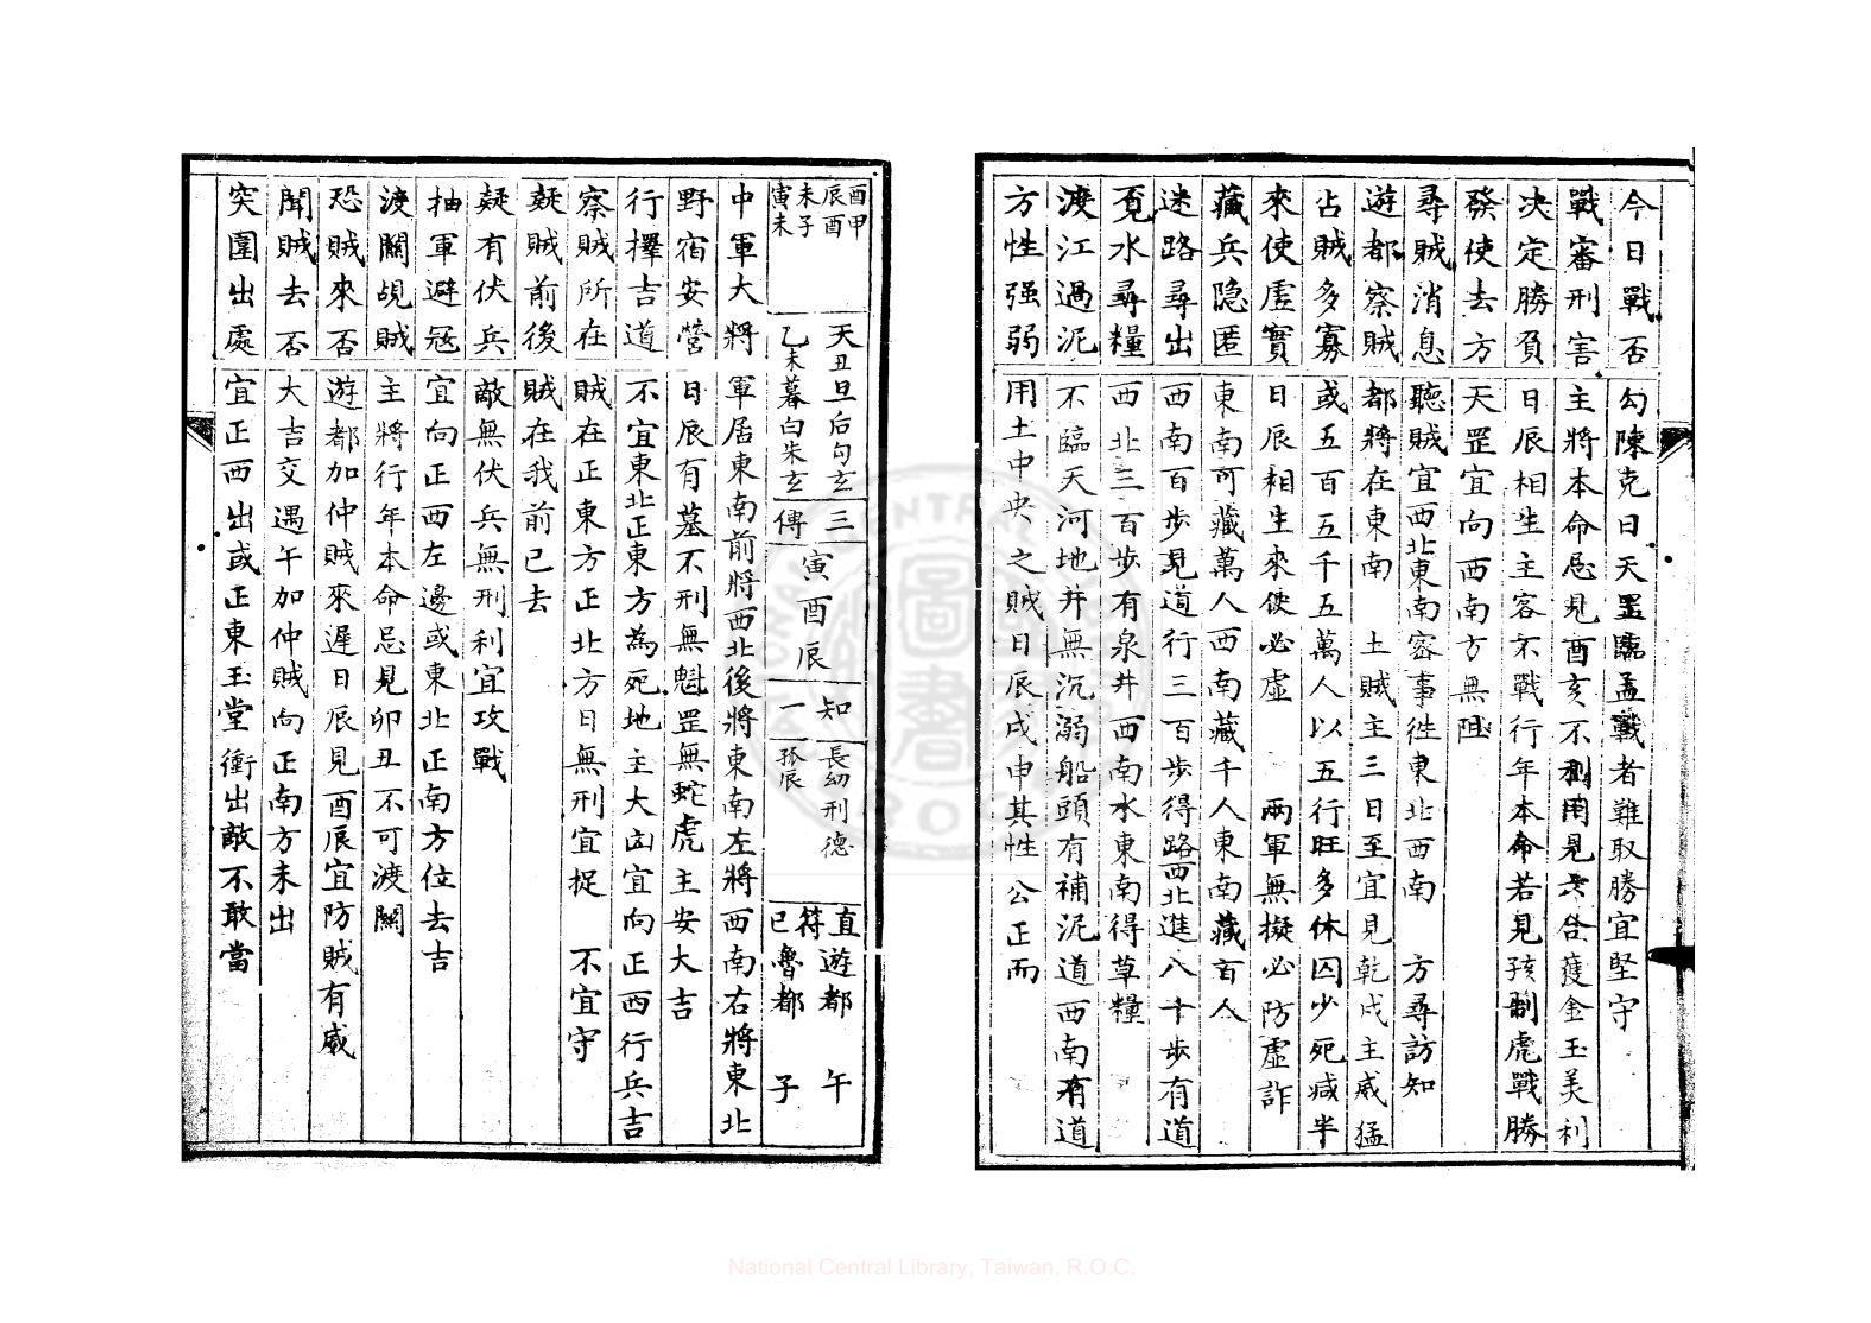 今日戰否 勾陳克日天罡臨孟戰者難取勝宜堅守
戰審刑害 主將本命忌見酉亥不利用見合獲金玉美利
決定勝負 日辰相生主客不戰行年本命若見孩制虎戰勝
發使去方 天罡宜向西南方無阻
尋賊消息 聽賊宜西北東南密事徃東北西南 方尋訪知
遊都察賊 都將在東南 土賊主三日至宜見乾戌主威猛
占賊多寡 或五百五千五萬人以五行旺多休囚少死减半
來使虛實 日辰相生來使必虛 兩軍無擬必防虛詐
藏兵隐匿 東南可藏萬人西南藏千人東南藏百人
迷路尋出 西南百步見道行三百步得路西北進八十步有道
覔水尋糧 西北三百步有泉井西南水東南得草糧
渡江過泥 不臨天河地井無沉溺船頭有補泥道西南有道
方性强弱 用土中央之賊日辰戌申其性公正而
酉甲
辰酉
未子
寅未
天丑旦后勾玄
乙未暮白朱玄
三傳
寅酉辰
知一
長幼刑德
孤辰
直符巳
遊都 午
魯都 子
中軍大將 軍居東南前將西北後將東南左將西南右將東北
野宿安營 日辰有墓不刑無魁罡無蛇虎主安大吉
行擇吉道 不宜東北正東方為死地主大凶宜向正西行兵吉
察賊所在 賊在正東方正北方日無刑宜捉 不宜守
疑賊前後 賊在我前已去
疑有伏兵 敵無伏兵無刑利宜攻戰
抽軍避冦 宜向正西左邊或東北正南方位去吉
渡關覘賊 主將行年本命忌見卯丑不可渡關
恐賊來否 遊都加仲賊來遲日辰見酉辰宜防賊有威
聞賊去否 大吉交遇午加仲賊向正南方未出
突圍出處 宜正西出或正東玉堂衝出敵不敢當
National Central Library, Taiwan, R.O.C.